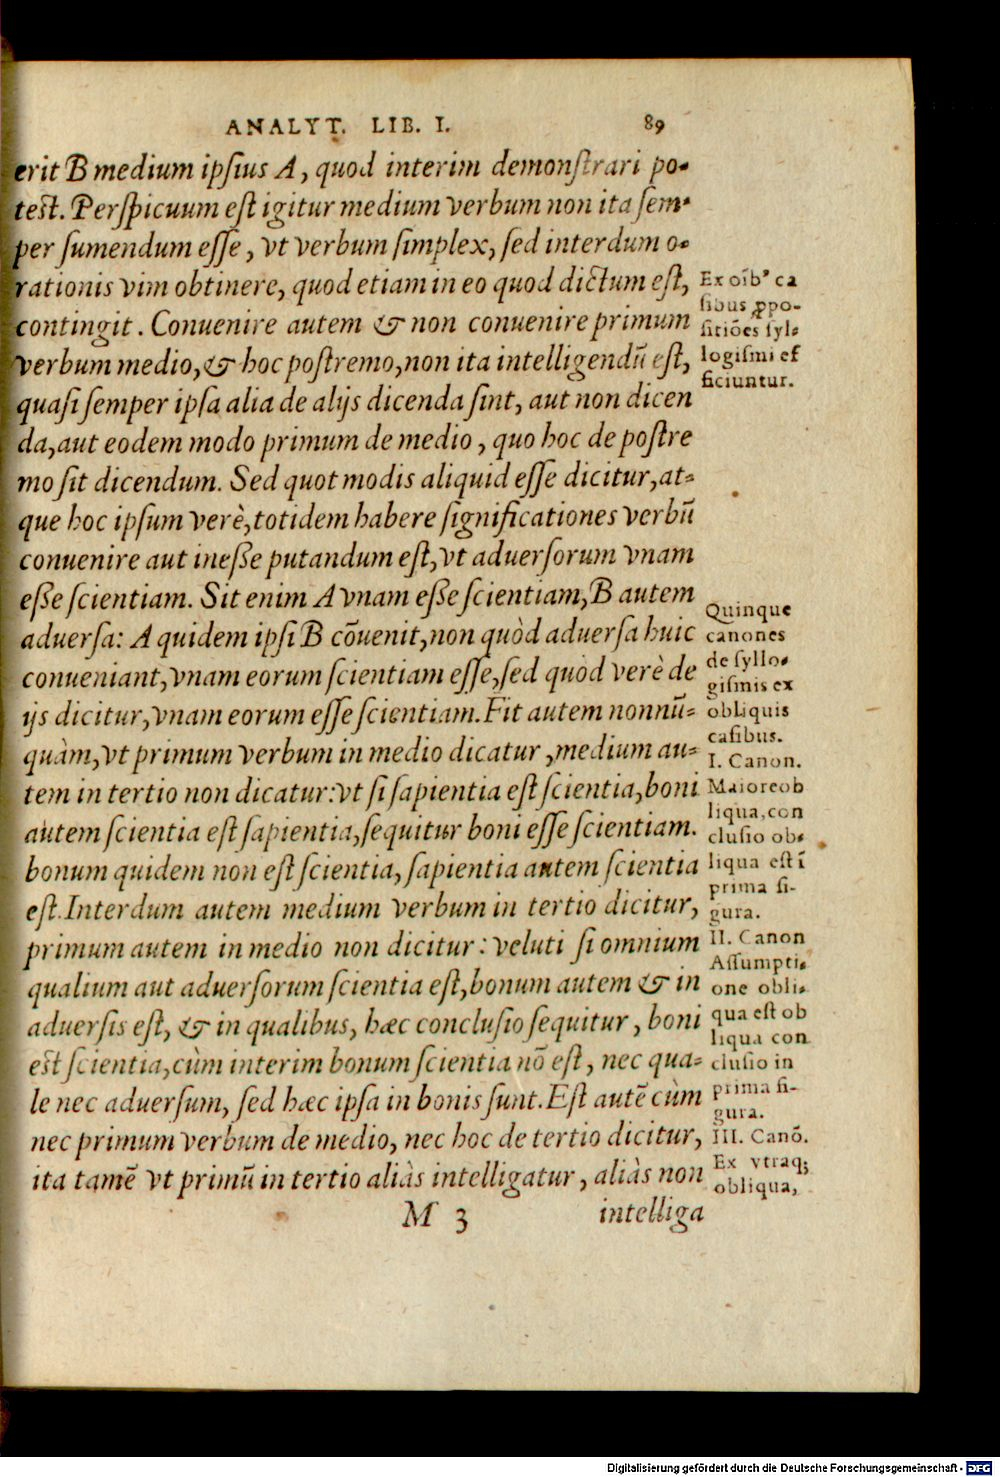 ANALYT. LIB. I. 89
erit B medium ipſius A, quod interim demonſtrari po-
teſt. Perſpicuum eſt igitur medium verbum non ita ſem-
per ſumendum eſſe, vt verbum ſimplex, ſed interdum o-
rationis vim obtinere, quod etiam in eo quod dictum eſt,
contingit. Conuenire autem & non conuenire primum
verbum medio, & hoc poſtremo, non ita intelligendũ eſt,
quaſi ſemper ipſa alia de alijs dicenda ſint, aut non dicen
da, aut eodem modo primum de medio, quo hoc de poſtre
mo ſit dicendum. Sed quot modis aliquid eſſe dicitur, at-
que hoc ipſum verè, totidem habere ſignificationes verbũ
conuenire aut ineſſe putandum eſt, vt aduerſorum vnam
eſſe ſcientiam. Sit enim A vnam eſſe ſcientiam, B autem
aduerſa: A quidem ipſi B cõuenit, non quòd aduerſa huic
conueniant, vnam eorum ſcientiam eſſe, ſed quòd verè de
ijs dicitur, vnam eorum eſſe ſcientiam. Fit autem nonnũ-
quàm, vt primum verbum in medio dicatur, medium au-
tem in tertio non dicatur: vt ſi ſapientia eſt ſcientia, boni
autem ſcientia eſt ſapientia, ſequitur boni eſſe ſcientiam.
bonum quidem non eſt ſcientia, ſapientia autem ſcientia
eſt. Interdum autem medium verbum in tertio dicitur,
primum autem in medio non dicitur: veluti ſi omnium
qualium aut aduerſorum ſcientia eſt, bonum autem & in
aduerſis eſt, & in qualibus, hæc concluſio ſequitur, boni
eſt ſcientia, cùm interim bonum ſcientia nõ eſt, nec qua-
le nec aduerſum, ſed hæc ipſa in bonis ſunt. Eſt autẽ cùm
nec primum verbum de medio, nec hoc de tertio dicitur,
ita tamẽ vt primũ in tertio aliàs intelligatur, aliàs non
M 3 intelliga
Ex oĩbꝰ ca
ſibus ꝓpo-
ſitiões ſyl-
logiſmi ef
ficiuntur.
Quinque
canones
de ſyllo-
giſmis ex
obliquis
caſibus.
I. Canon.
Maiore ob
liqua, con
cluſio ob-
liqua eſt ĩ
prima fi-
gura.
II. Canon
Aſſumpti-
one obli-
qua eſt ob
liqua con
cluſio in
prima fi-
gura.
III. Canõ.
Ex vtraq;
obliqua,
Digitalisierung gefördert durch die Deutsche Forschungsgemeinschaft - DFG